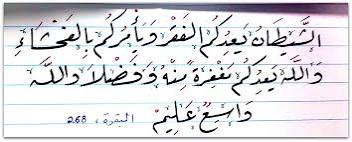 الشَّيْطَانُ يَعِدُكُمُ الفَقْرَ وَيَأْمُرُكُم بِالفَحْشَاءِ
وَاللَّهُ يَعِدُكُم مَغْفِرَةً مِنْهُ وَفَضْلاً وَاللَّهُ
وَاسِعٌ عَلِيمٌ البقرة، 268